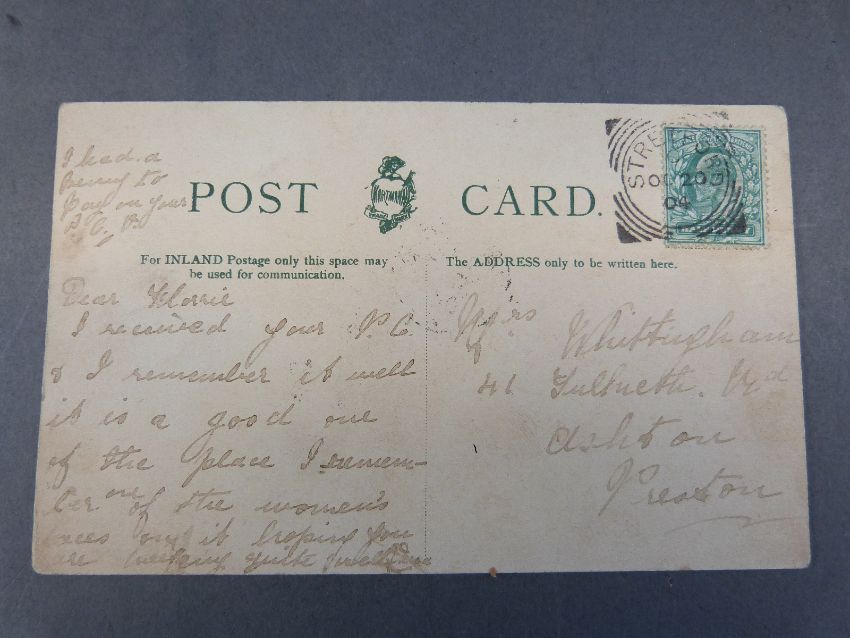 I had a
penny to
pay on your
P.C. B
POST CARD.
HARTMANN
STRETFORD
OC 20
04
For INLAND Postage only this space may
be used for communication.
The ADDRESS only to be written here.
Dear Florrie
I received your P.C.
& I remember it well
it is a good one
of the place I remem-
ber one of the women's
faces on it hoping you
are keeping quite well
Mrs Whittingham
41 Tulketh. Rd
Ashton
Preston